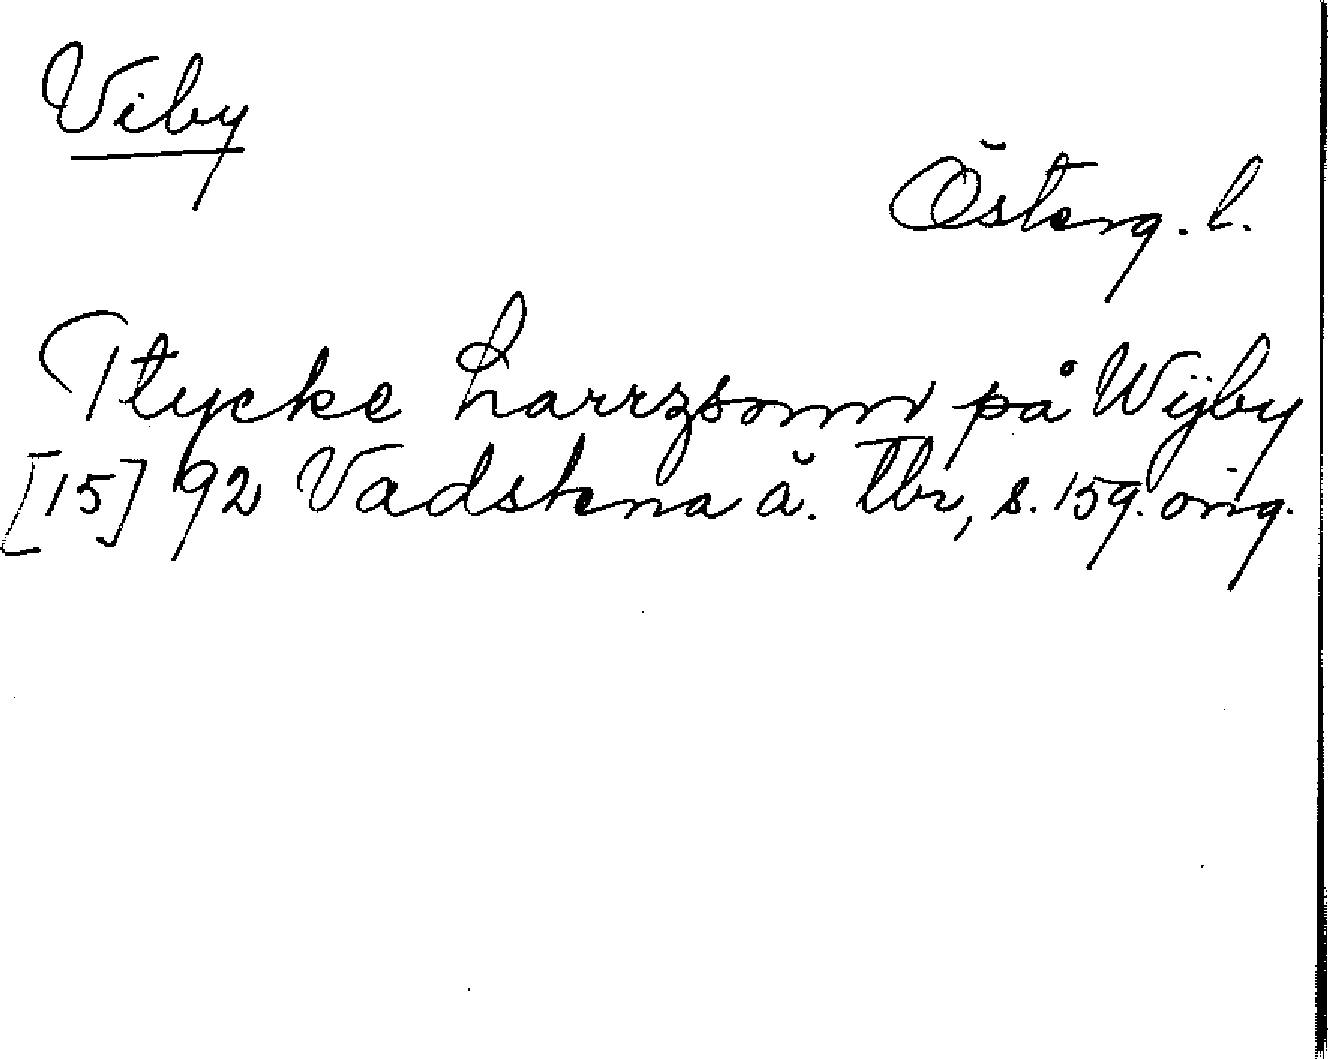 Viby
Österg. l.
Tlycke Larrzsonn på Wijby
[15] 92 Vadstena ä. Tbr, s. 159. orig.